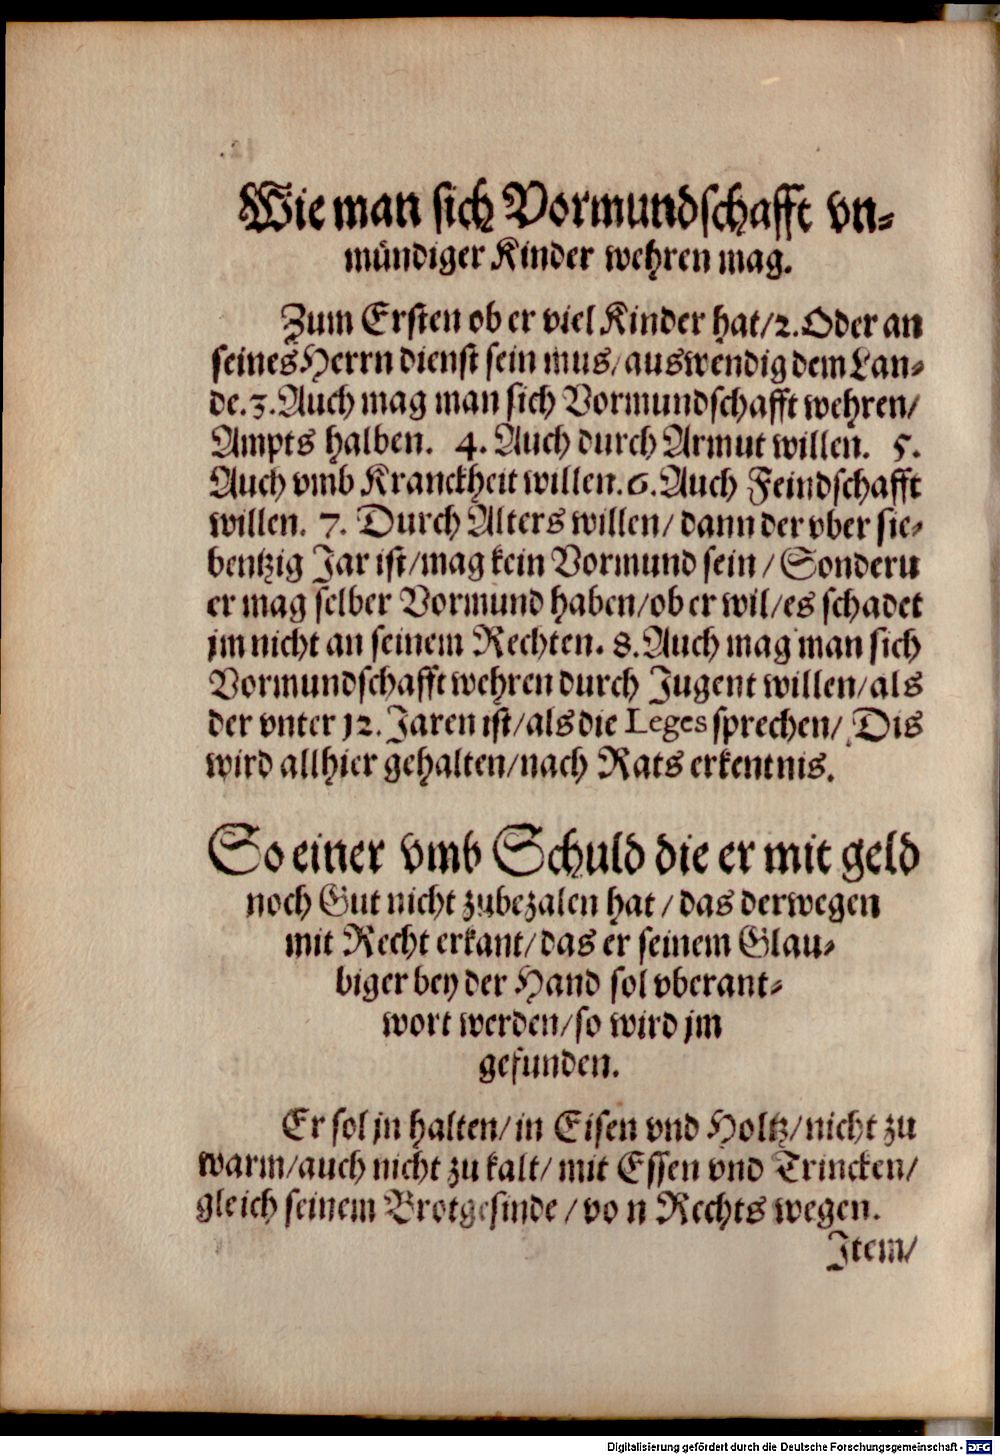 Wie man sich Vormundschafft vn-
mündiger Kinder wehren mag.
Zum Ersten ob er viel Kinder hat/2. Oder an
seines Herrn dienst sein mus/auswendig dem Lan-
de. 3. Auch mag man sich Vormundschafft wehren/
Ampts halben. 4. Auch durch Armut willen. 5.
Auch vmb Kranckheit willen. 6. Auch Feindschafft
willen. 7. Durch Alters willen/ dann der vber sie-
bentzig Jar ist/mag kein Vormund sein / Sonderu
er mag selber Vormund haben/ob er wil/es schadet
jm nicht an seinem Rechten. 8. Auch mag man sich
Vormundschafft wehren durch Jugent willen/als
der vnter 12. Jaren ist/als die Leges sprechen/ Dis
wird allhier gehalten/nach Rats erkentnis.
So einer vmb Schuld die er mit geld
noch Gut nicht zubezalen hat / das derwegen
mit Recht erkant/das er seinem Glau-
biger bey der Hand sol vberant-
wort werden/so wird jm
gefunden.
Er sol jn halten/in Eisen vnd Holtz/nicht zu
warm/auch nicht zu kalt/ mit Essen vnd Trincken/
gleich seinem Brotgesinde / vo n Rechts wegen.
Item/
Digitalisierung gefördert durch die Deutsche Forschungsgemeinschaft - DFG